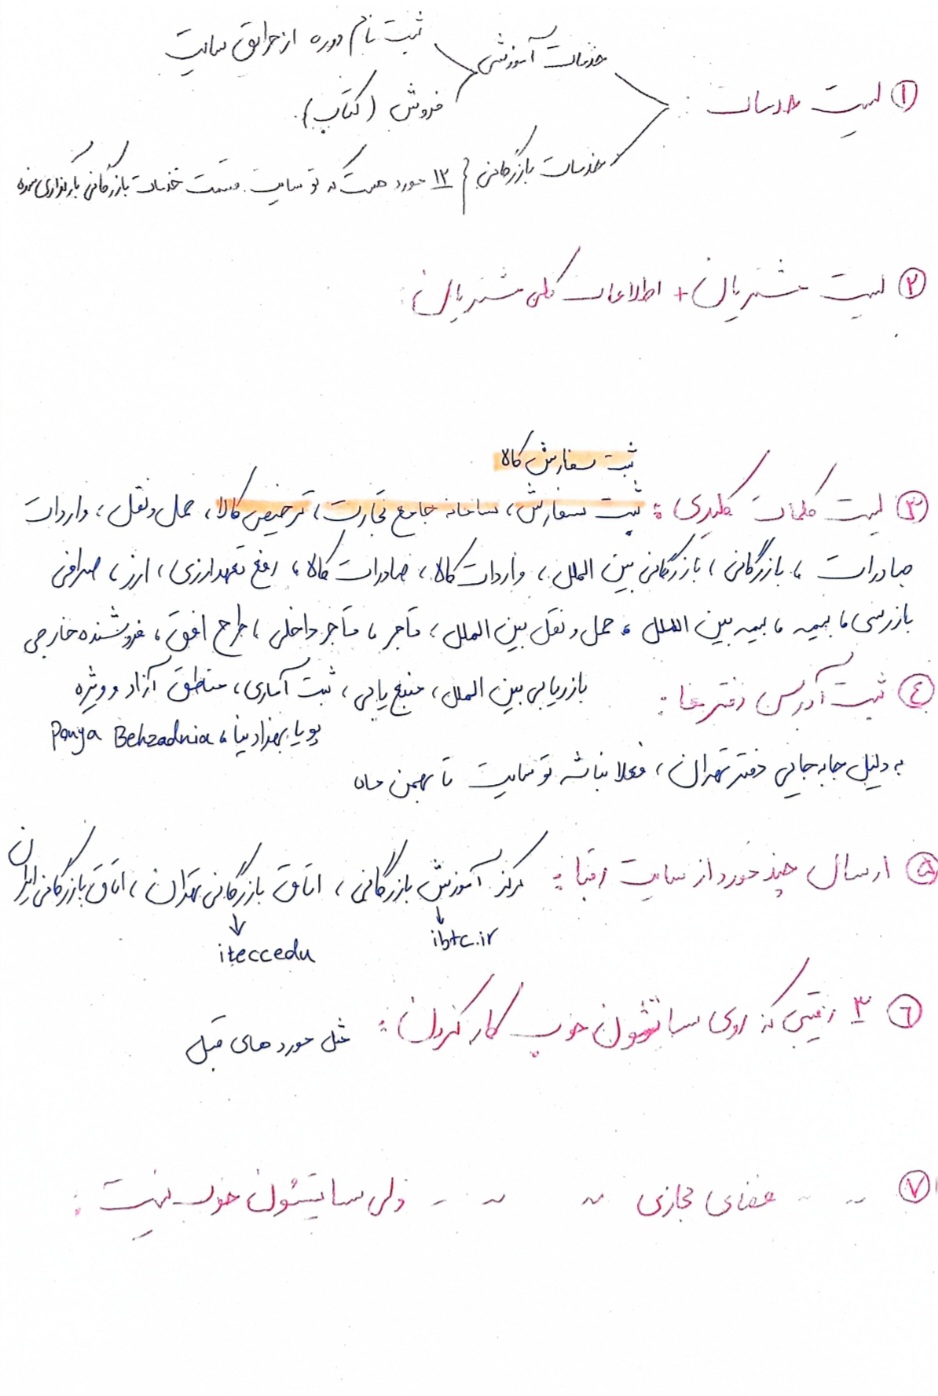 ① لیست خدمات :
خدمات آموزشی
ثبت نام دوره از طریق سایت
فروش (کتاب).
خدمات بازرگانی { ۱۲ مورد هست که تو سایت. قسمت خدمات بازرگانی بارگزاری شده
② لیست مشتریان + اطلاعات کلی مشتریان :
ثبت سفارش کالا
③ لیست کلمات کلیدی : ثبت سفارش، سامانه جامع تجارت، ترخیص کالا، حمل و نقل، واردات
صادرات، بازرگانی، بازرگانی بین الملل، واردات کالا، صادرات کالا، رفع تعهد ارزی، ارز، صرافی
بازرسی، بیمه، بیمه بین الملل، حمل و نقل بین الملل، تاجر، تاجر داخلی، طرح افق، فروشنده خارجی
بازاریابی بین الملل، منبع یابی، ثبت آماری، مناطق آزاد و ویژه
پویا بهزادنیا، Pouya Behzadnia
④ ثبت آدرس دفترها :
به دلیل جابه جایی دفتر تهران، فعلا نباشه تو سایت تا بهمن ماه
⑤ ارسال چند مورد از سایت رقبا : مرکز آموزش بازرگانی، اتاق بازرگانی تهران، اتاق بازرگانی ایران
ibtc.ir
iteccedu
⑥ ۳ رقیبی که روی سایتشون خوب کار کردن : مثل مورد های قبل
⑦ ~ ~ فضای مجازی ~ ~ ~ ~ ولی سایتشون خوب نیست :